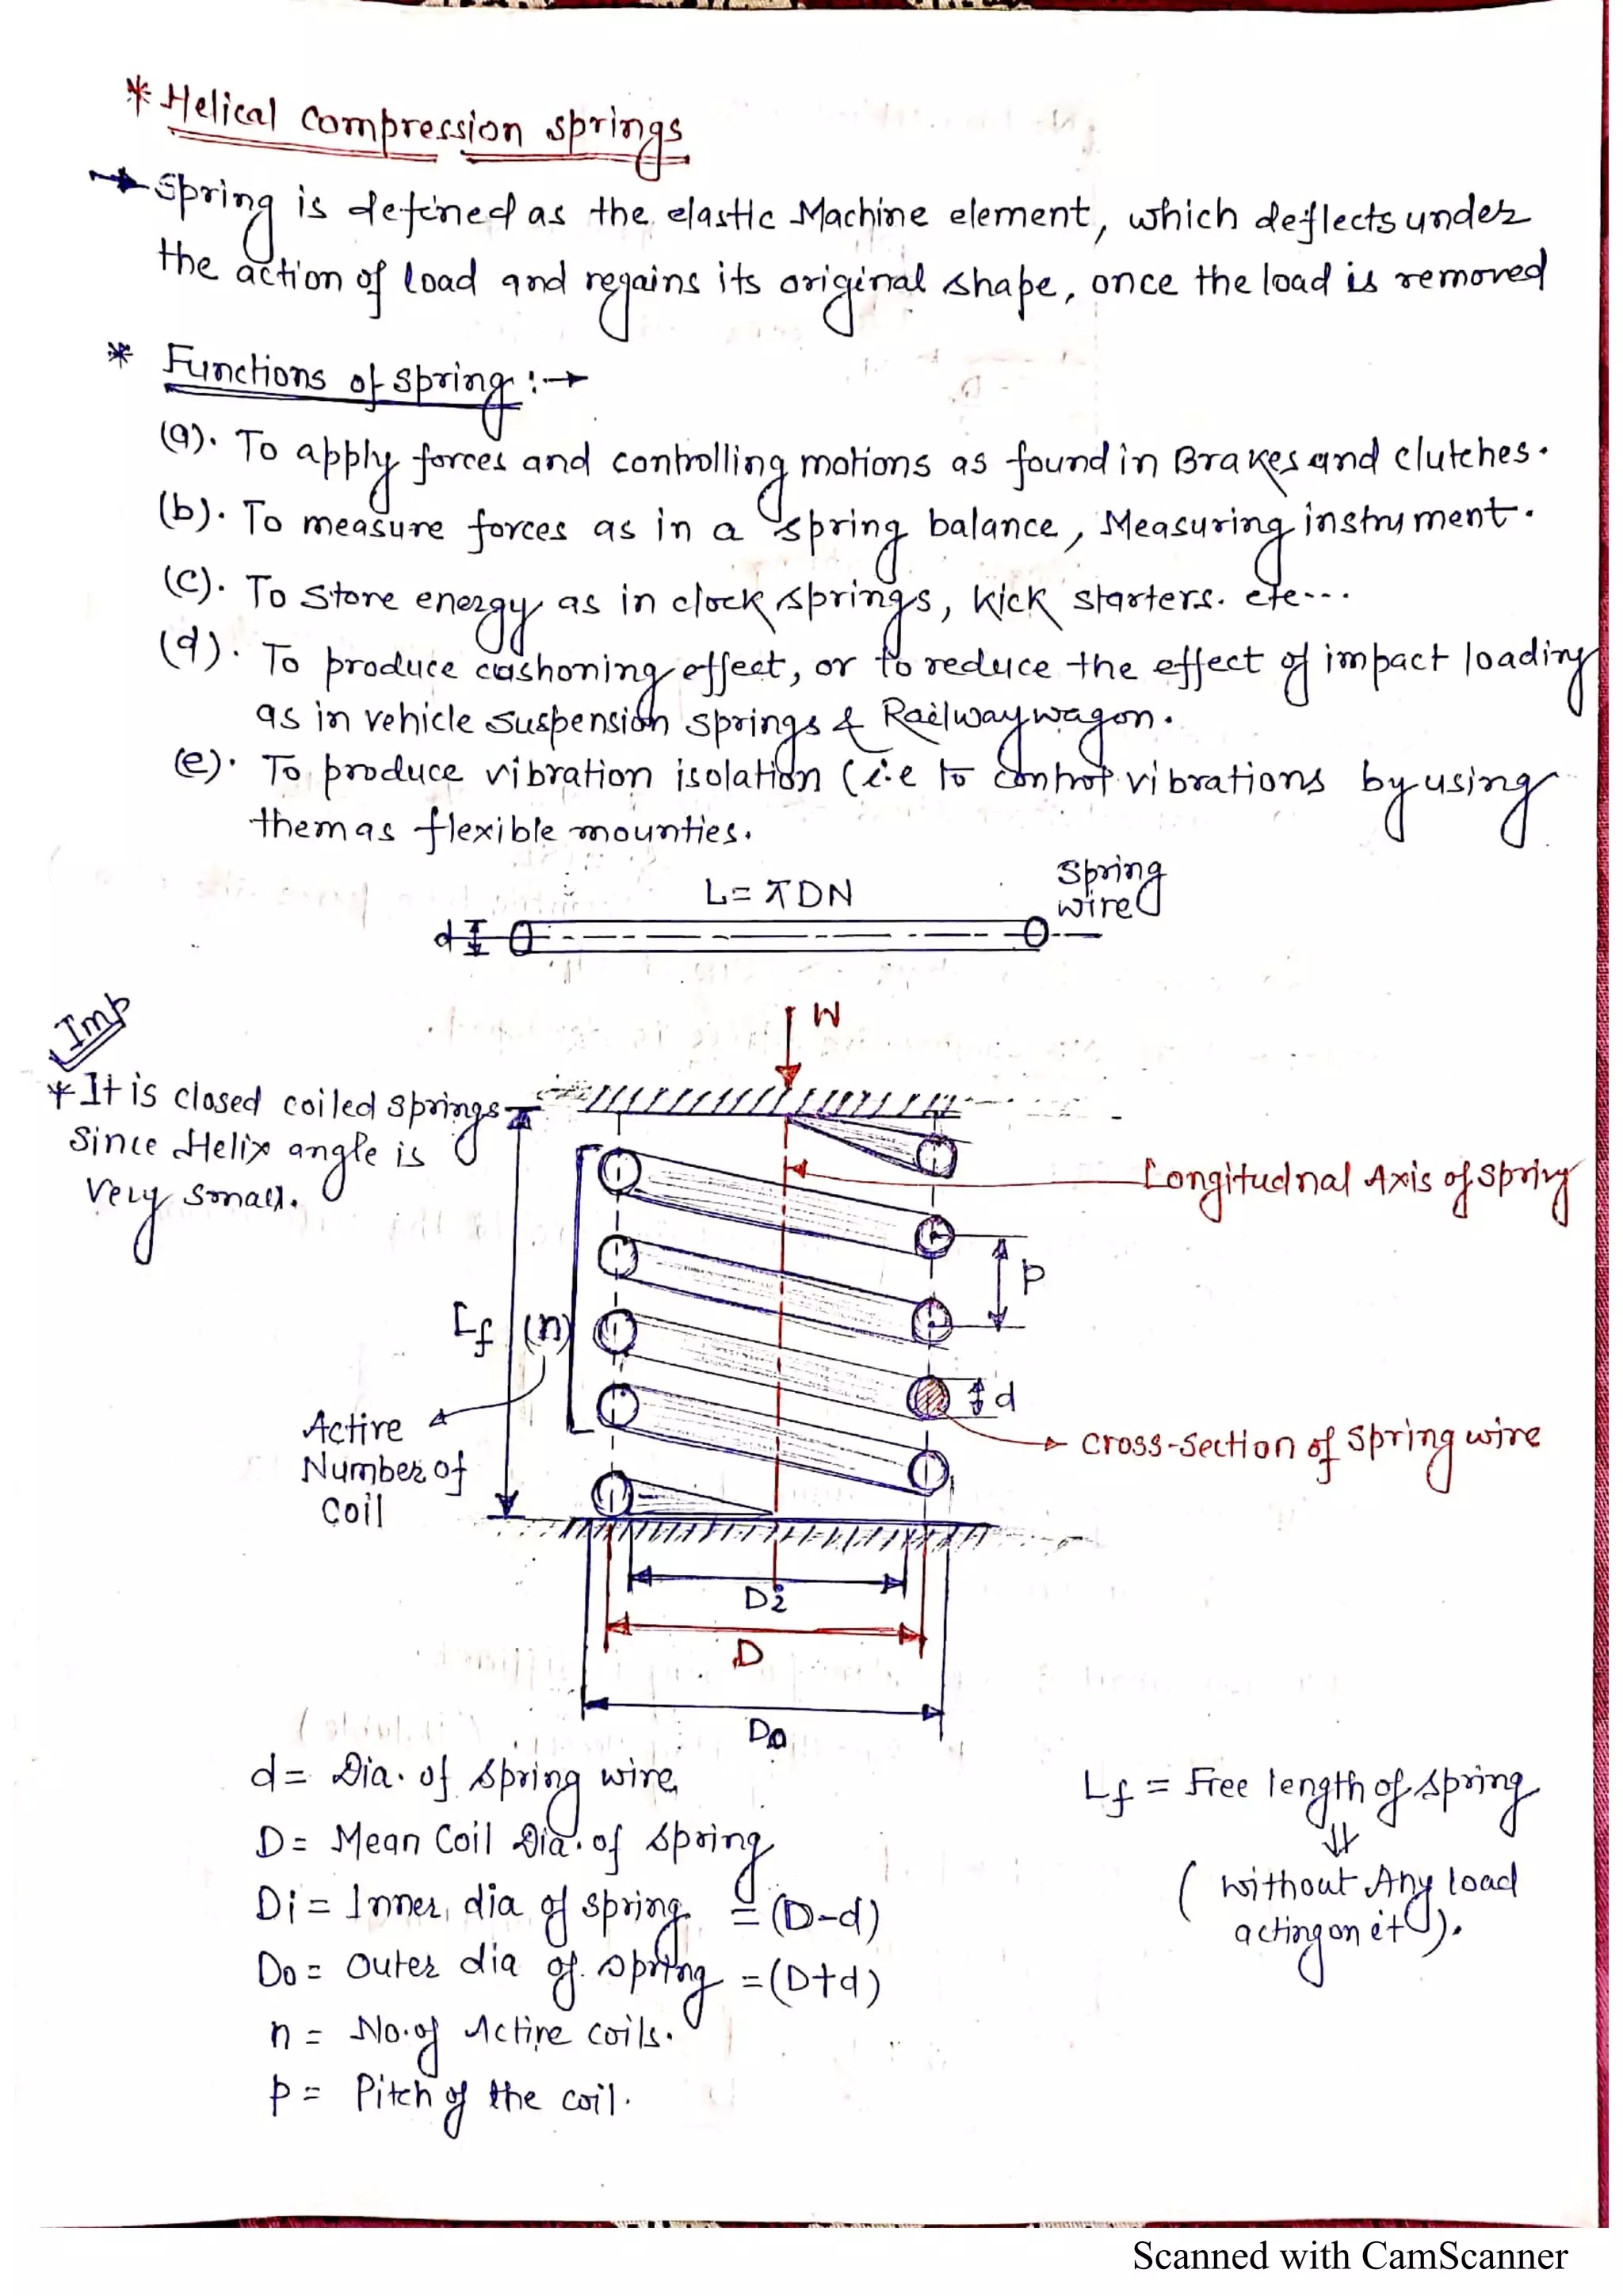 * Helical Compression springs
→ Spring is defined as the elastic Machine element, which deflects under
the action of load and regains its original shape, once the load is removed
* Functions of spring :→
(a). To apply forces and controlling motions as found in Brakes and clutches.
(b). To measure forces as in a spring balance, Measuring instrument.
(c). To store energy as in clock springs, kick starters. etc...
(d). To produce cushoning effect, or to reduce the effect of impact loading
as in vehicle suspension springs & Railway wagon.
(e). To produce vibration isolation (i.e to control vibrations by using
them as flexible mounties.
L = πDN
Spring
wire
d
Imp
W
* It is closed coiled springs
Since Helix angle is
very small.
Longitudnal Axis of Spring
P
Lf
(n)
d
Active
Number of
Coil
Cross-Section of Spring wire
Di
D
Do
d = Dia. of spring wire
D = Mean Coil Dia. of spring
Di = Inner dia of spring = (D-d)
Do = Outer dia of spring = (D+d)
n = No. of Active coils.
p = Pitch of the coil.
Lf = Free length of spring
⇓
( without Any load
acting on it ).
Scanned with CamScanner